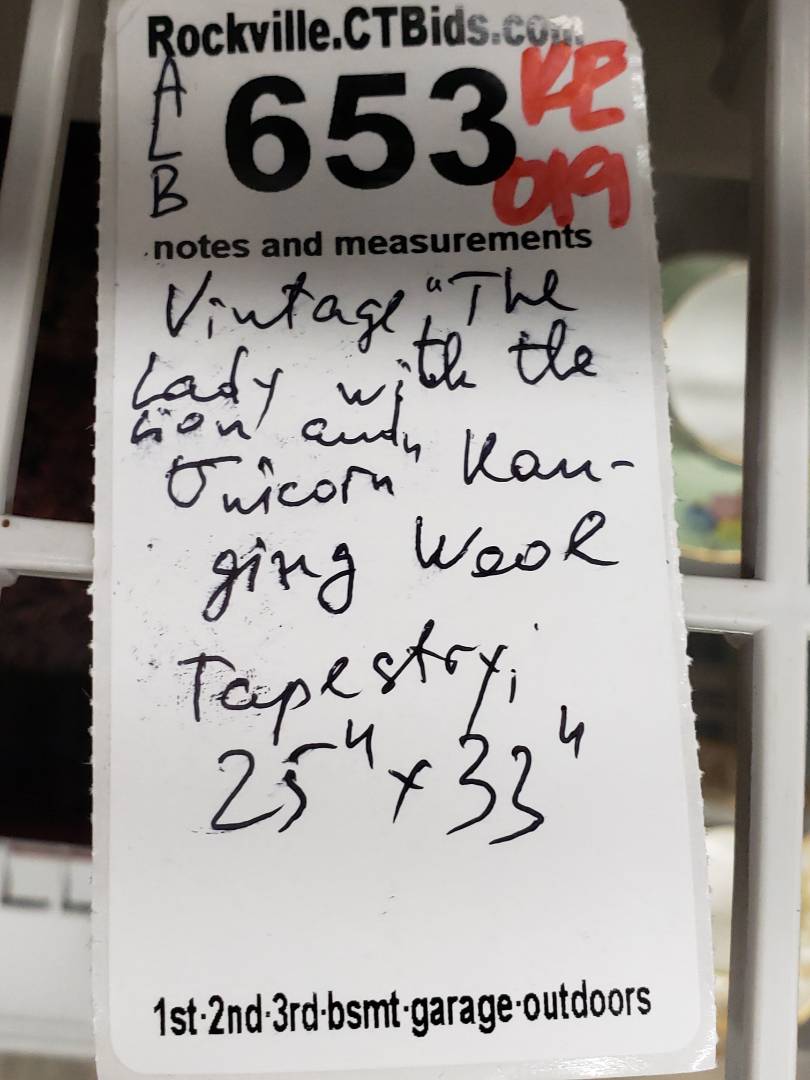 Rockville.CTBids.com
ALB
653
KP
019
notes and measurements
Vintage "The
Lady with the
Lion and
Unicorn" Han-
ging Wool
Tapestry;
25" x 33"
1st·2nd·3rd·bsmt·garage·outdoors